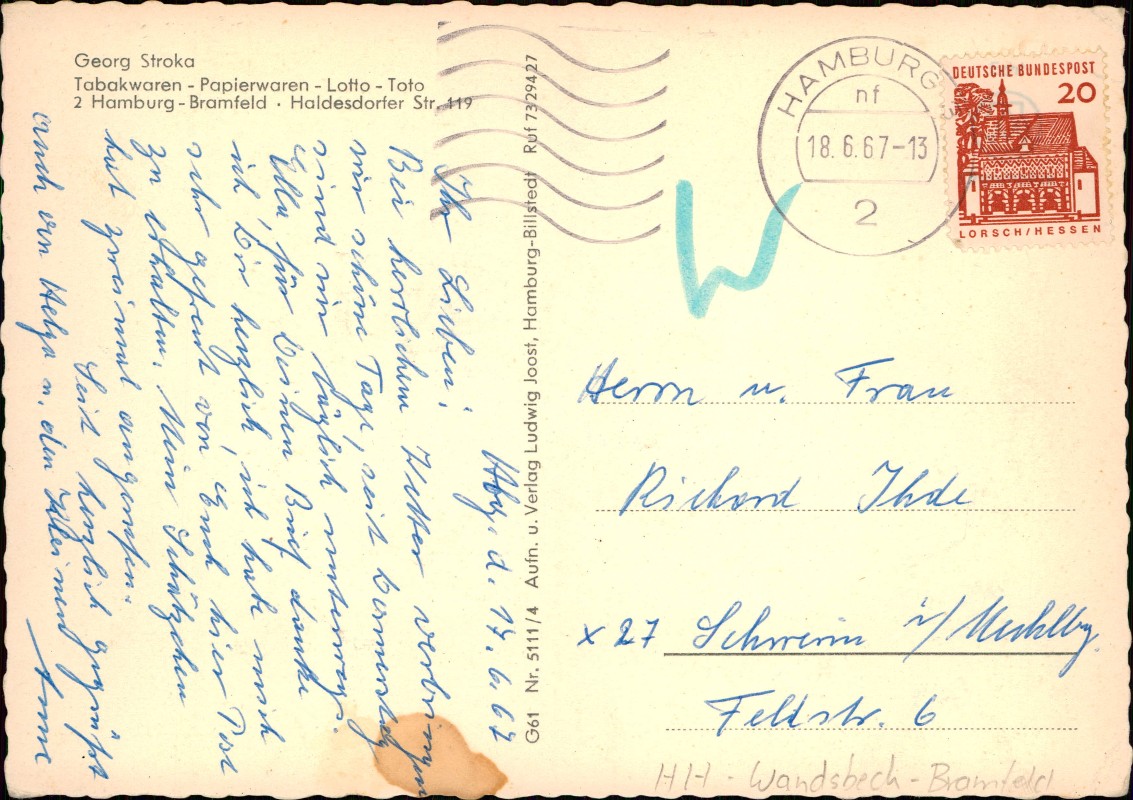 Georg Stroka
Tabakwaren - Papierwaren - Lotto - Toto
2 Hamburg-Bramfeld · Haldesdorfer Str. 119
Hbg. d. 17. 6. 67
Ihr Lieben!
Bei herrlichem Wetter verbringen
wir schöne Tage, seit Donnerstag
sind wir täglich unterwegs.
Ella, für Deinen Brief danke
ich Dir herzlich, ich habe mich
sehr gefreut von Euch hier Post
zu erhalten. Mein Schätzchen
hat zweimal angerufen.
Seid herzlich gegrüßt
auch von Helga u. den Kleinen
Anni
G61 Nr. 5111/4 Aufn. u. Verlag Ludwig Joost, Hamburg-Billstedt Ruf 73 294 27
HAMBURG
nf
18.6.67-13
2
DEUTSCHE BUNDESPOST
20
LORSCH/HESSEN
Herrn u. Frau
Richard Ihde
x 27 Schwerin i/Mecklbg.
Feldstr. 6
HH - Wandsbeck - Bramfeld